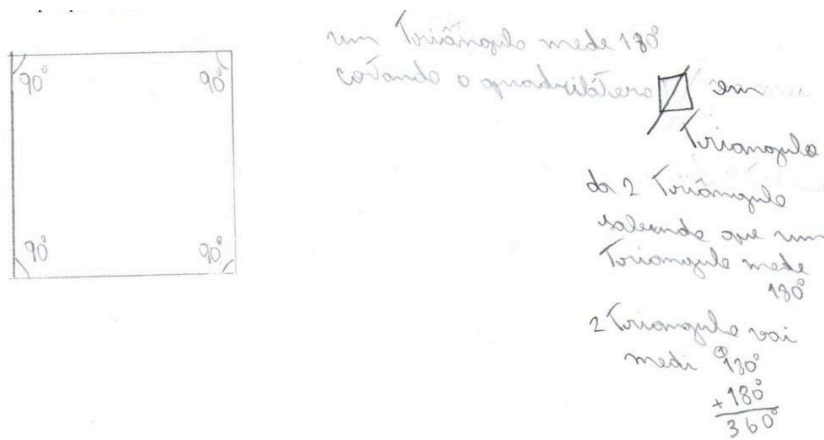 90°
90°
90°
90°
um Triângulo mede 180°
cortando o quadrilátero em
Triangulo
da 2 Triângulo
sabendo que um
Triangulo mede
180°
2 Triangulo vai
medi 180°
+180°
360°